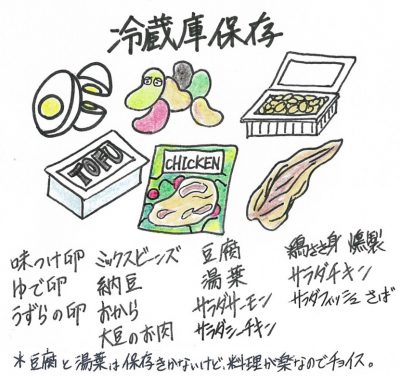 冷蔵庫保存
TOFU
CHICKEN
味つけ卵 ミックスビーンズ 豆腐 鶏ささ身 燻製
ゆで卵 納豆 湯葉 サラダチキン
うずらの卵 おから サラダサーモン サラダフィッシュ さば
大豆のお肉 サラダシーチキン
※豆腐と湯葉は保存きかないけど、料理が楽なのでチョイス。